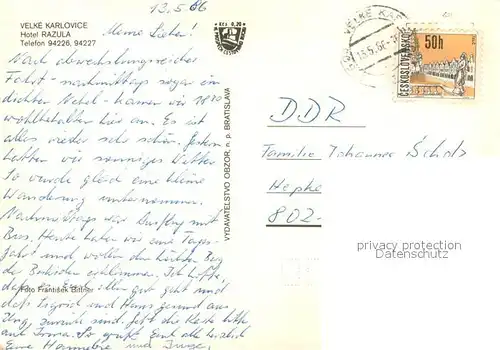 13.5.86
VELKÉ KARLOVICE
Hotel RAZULA
Telefon 94226, 94227
Meine Lieben!
Nach abwechslungsreicher
Fahrt - nachmittags sogar in
dichten Nebel - kamen wir 18
wohlbehalten hier an. Es ist
alles wieder sehr schön. Gestern
hatten wir sonniges Wetter
So wurde gleich eine kleine
Wanderung unternommen.
Nachmittags war Ausflug mit
Bus. Heute haben wir eine Tages-
fahrt und wollen den höchsten Berg
der Beskiden erklimmen. Ich hoffe,
daß es Euch allen gut geht und
daß Sigrid und Hans gesund aus
zurück sind. Gebt die Karte bitte
auch Irma. So grüßt Euch alle herzlich
Eure Hannelore und
Foto František Bittner
VYDAVATELSTVO OBZOR, n. p. BRATISLAVA
Kčs 0,70
VELKÉ KAR
13.5.86
50h
ČESKOSLOVENSKO
DDR
Familie Johannes Scholz
Hepke
802-
privacy protection
Datenschutz